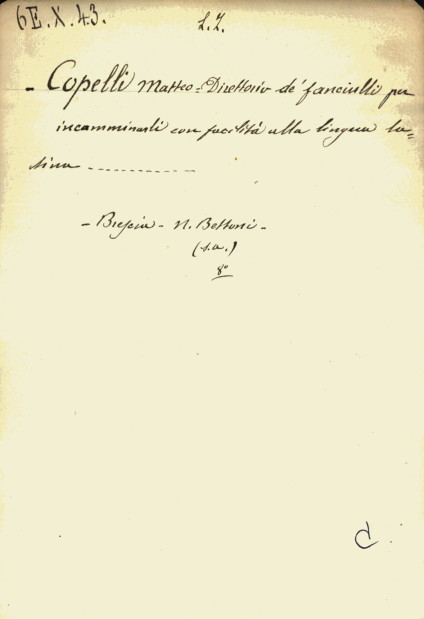 6E.X.43.
L.Z.
- Copelli Matteo = Direttorio de' fanciulli per
incamminarli con facilità alla lingua la=
tina ------------
- Brescia - N. Bettoni -
(s.a.)
8º